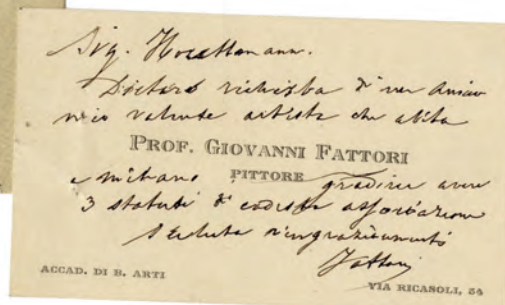 Sig. Hoettmann.
Dietro richiesta d'un amico
mio valente artista che abita
PROF. GIOVANNI FATTORI
a milano PITTORE gradirei avere
3 statuti di codesta associazione
Saluti e ringraziamenti
Fattori
ACCAD. DI B. ARTI
VIA RICASOLI, 54